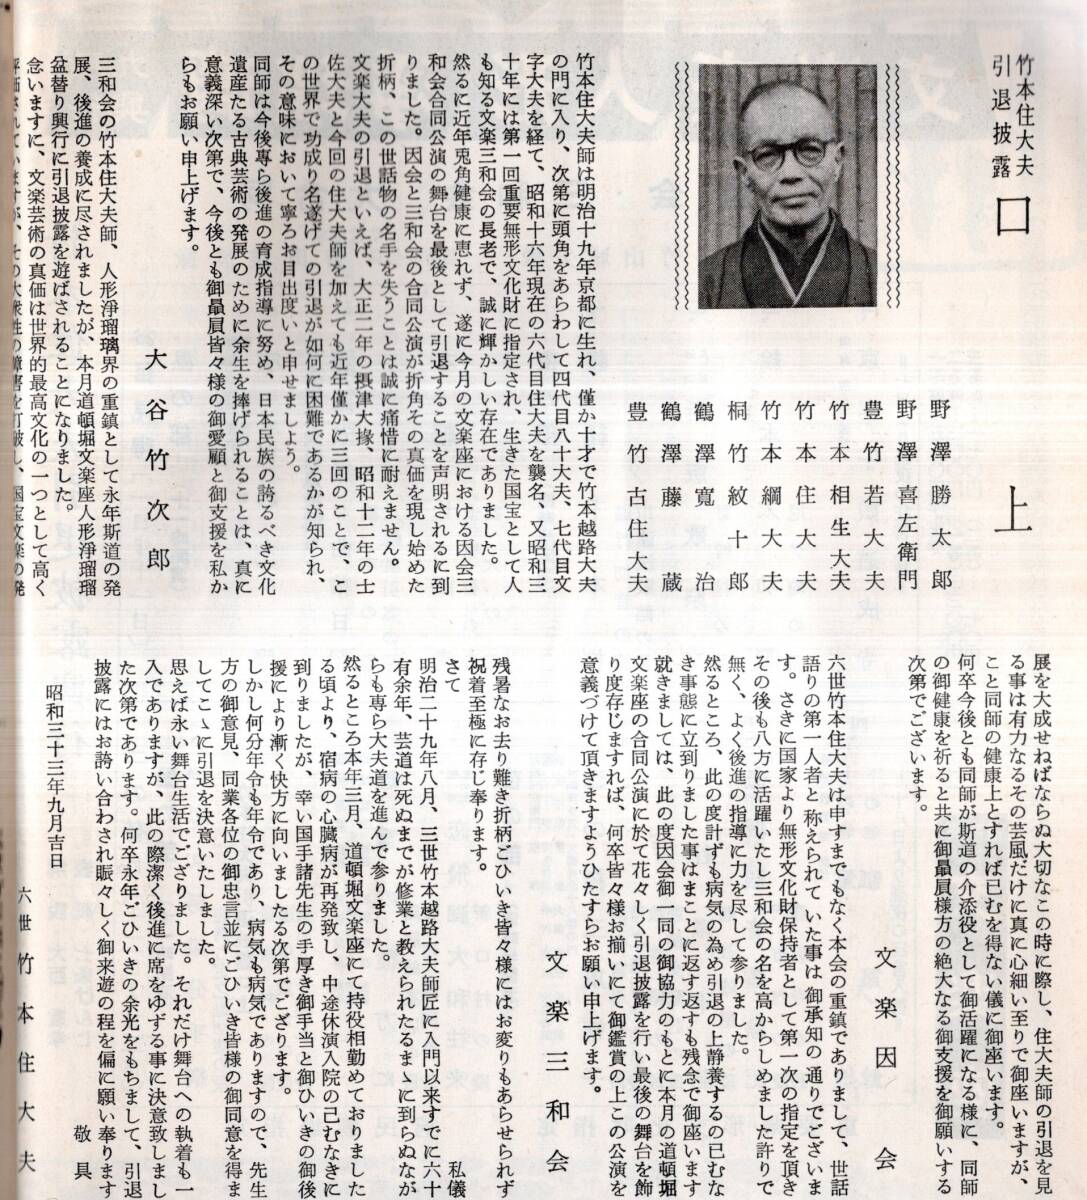 竹本住大夫
引退披露
口上
野澤勝太郎
野澤喜左衛門
豊竹若大夫
竹本相生大夫
竹本住大夫
竹本綱大夫
桐竹紋十郎
鶴澤寛治
鶴澤藤蔵
豊竹古住大夫
竹本住大夫師は明治十九年京都に生れ、僅か十才で竹本越路大夫
の門に入り、次第に頭角をあらわして四代目八十大夫、七代目文
字大夫を経て、昭和十六年現在の六代目住大夫を襲名、又昭和三
十年には第一回重要無形文化財に指定され、生きた国宝として人
も知る文楽三和会の長老で、誠に輝かしい存在でありました。
然るに近年兎角健康に恵れず、遂に今月の文楽座における因会三
和会合同公演の舞台を最後として引退することを声明されるに到
りました。因会と三和会の合同公演が折角その真価を現し始めた
折柄、この世話物の名手を失うことは誠に痛惜に耐えません。
文楽大夫の引退といえば、大正二年の摂津大掾、昭和十二年の土
佐大夫と今回の住大夫師を加えても近年僅かに三回のことで、こ
の世界で功成り名遂げての引退が如何に困難であるかが知られ、
その意味において寧ろお目出度いと申せましよう。
同師は今後専ら後進の育成指導に努め、日本民族の誇るべき文化
遺産たる古典芸術の発展のために余生を捧げられることは、真に
意義深い次第で、今後とも御贔屓皆々様の御愛顧と御支援を私か
らもお願い申上げます。
大谷竹次郎
三和会の竹本住大夫師、人形浄瑠璃界の重鎮として永年斯道の発
展、後進の養成に尽されましたが、本月道頓堀文楽座人形浄瑠璃
盆替り興行に引退披露を遊ばされることになりました。
念いますに、文楽芸術の真価は世界的最高文化の一つとして高く
評価されていますが、その大衆性の障害を打破し、国宝文楽の発
展を大成せねばならぬ大切なこの時に際し、住大夫師の引退を見
る事は有力なるその芸風だけに真に心細い至りで御座いますが、
こと同師の健康上とあれば已むを得ない儀に御座います。
何卒今後とも同師が斯道の介添役として御活躍になる様に、同師
の御健康を祈ると共に御贔屓様方の絶大なる御支援を御願いする
次第でございます。
文楽因会
六世竹本住大夫は申すまでもなく本会の重鎮でありまして、世話
語りの第一人者と称えられていた事は御承知の通りでございま
す。さきに国家より無形文化財保持者として第一次の指定を頂き
その後も八方に活躍いたし三和会の名を高からしめました許りで
無く、よく後進の指導に力を尽して参りました。
然るところ、此の度計ずも病気の為め引退の上静養するの已むな
き事態に立到りました事はまことに返す返すも残念で御座います
就きましては、此の度因会御一同の御協力のもとに本月の道頓堀
文楽座の合同公演に於て花々しく引退披露を行い最後の舞台を飾
り度存じますれば、何卒皆々様お揃いにて御鑑賞の上この公演を
意義づけて頂きますようひたすらお願い申上げます。
文楽三和会
残暑なお去り難き折柄ごひいき皆々様にはお変りもあらせられず
祝着至極に存じ奉ります。
さて 私儀
明治二十九年八月、三世竹本越路大夫師匠に入門以来すでに六十
有余年、芸道は死ぬまでが修業と教えられたるまゝに到らぬなが
らも専ら大夫道を進んで参りました。
然るところ本年三月、道頓堀文楽座にて持役相勤めておりました
る頃より、宿病の心臓病が再発致し、中途休演入院の已むなきに
到りましたが、幸い国手諸先生の手厚き御手当と御ひいきの御後
援により漸く快方に向いましたる次第でございます。
しかし何分年令も年令であり、病気も病気でありますので、先生
方の御意見、同業各位の御忠言並にごひいき皆様の御同意を得ま
してこゝに引退を決意いたしました。
思えば永い舞台生活でござりました。それだけ舞台への執着も一
入でありますが、此の際潔く後進に席をゆずる事に決意致しまし
た次第であります。何卒永年ごひいきの余光をもちまして、引退
披露にはお誘い合わされ賑々しく御来遊の程を偏に願い奉ります
敬具
昭和三十三年九月吉日
六世竹本住大夫